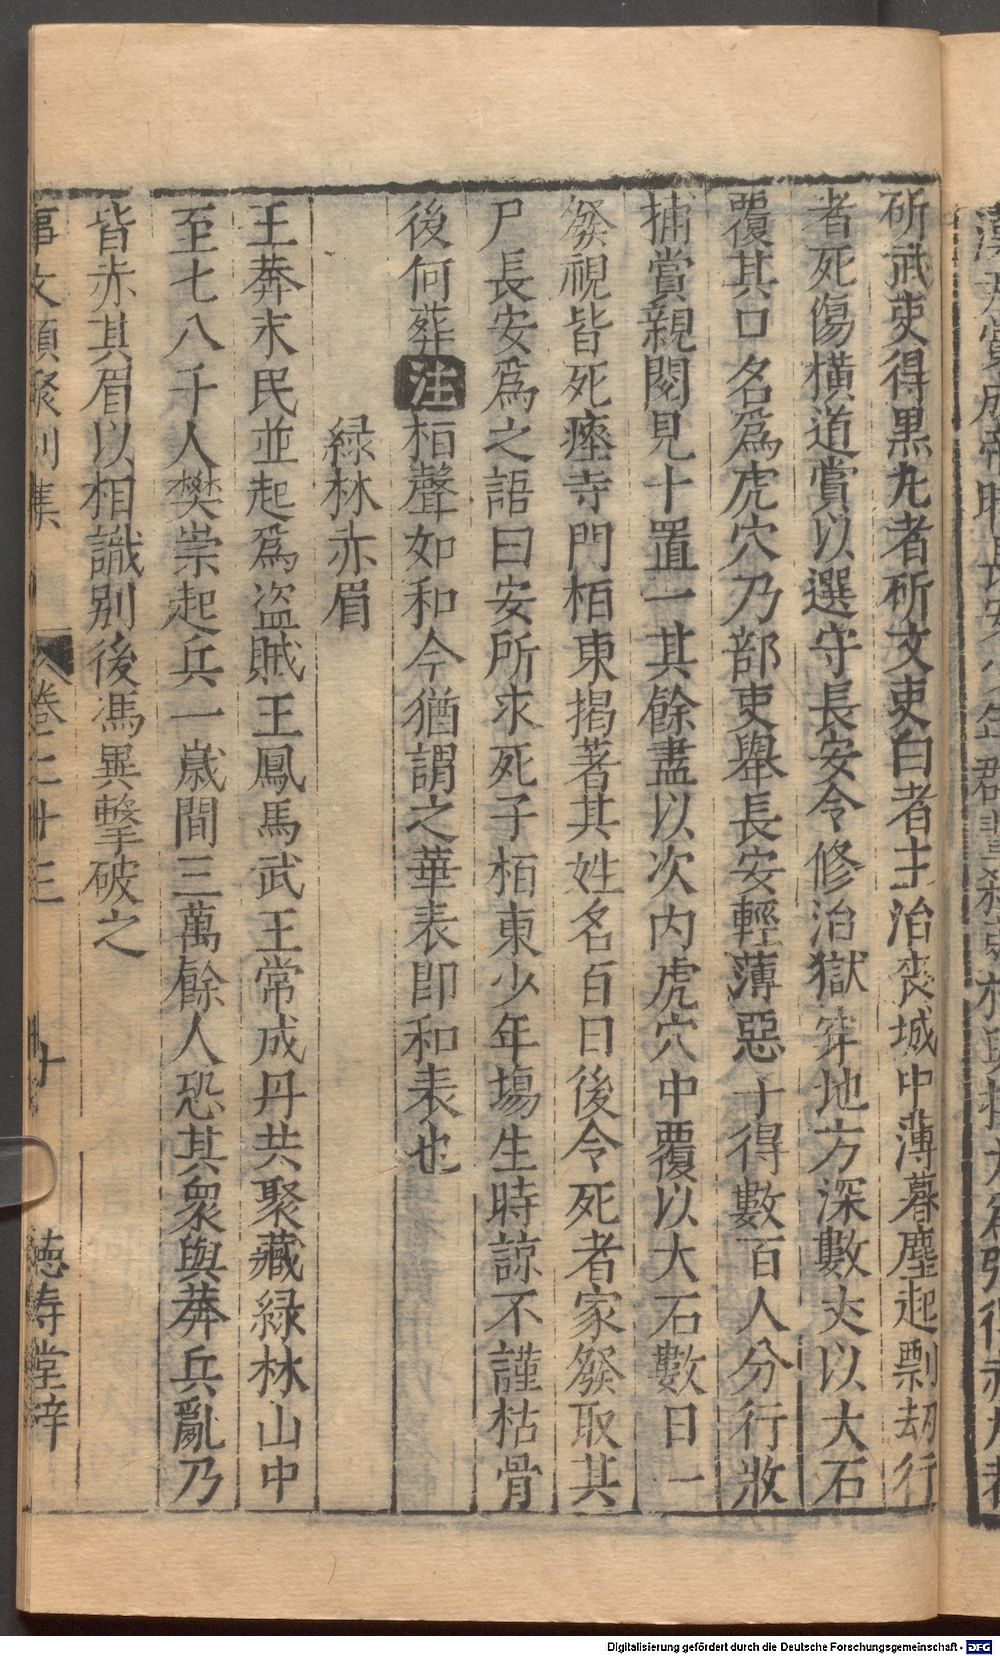 斫武吏得黒丸者斫文吏白者主治喪城中薄暮塵起剽刼行
者死傷橫道賞以選守長安令修治獄穿地方深數丈以大石
覆其口名爲虎穴乃部吏舉長安輕薄惡子得數百人分行收
捕賞親閱見十置一其餘盡以次内虎穴中覆以大石數日一
發視皆死瘞寺門栢東掲著其姓名百日後令死者家發取其
尸長安爲之語曰安所求死子栢東少年塲生時諒不謹枯骨
後何葬注栢聲如和今猶謂之華表即和表也
緑林赤眉
王莽末民並起爲盜賊王鳳馬武王常成丹共聚藏緑林山中
至七八千人樊崇起兵一嵗間三萬餘人恐其衆與莽兵亂乃
皆赤其眉以相識别後馮異擊破之
事文類聚别集 卷二十三 十 徳壽堂梓
Digitalisierung gefördert durch die Deutsche Forschungsgemeinschaft - DFG